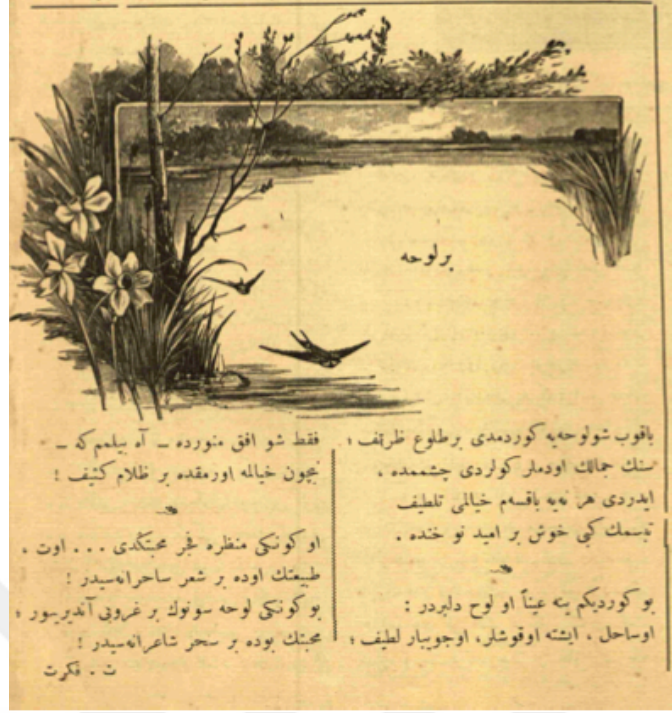 بر لوحه
باقوب شو لوحه‌یه كوردمدی بر طلوع ظریف ؛
سنك جمالك اودملر كولردی چشممده ،
ایدردی هر نه‌یه باقسه‌م خیالی تلطیف
تبسمك كبی خوش بر امید نو خنده .
بو كوردیكم ینه عیناً او لوح دلبردر :
اوساحل ، ایشته اوقوشلر ، اوجویبار لطیف ؛
فقط شو افق منورده ــ آه بیلمم كه ــ
نیچون خیالمه اورمقده بر ظلام كثیف !
او كونكی منظره فجر محبتكدی ... اوت ،
طبیعتك اوده بر شعر ساحرانه‌سیدر !
بو كونكی لوحه سونوك بر غروبی آندیریور ؛
محبتك بوده بر سحر شاعرانه‌سیدر !
ت . فكرت